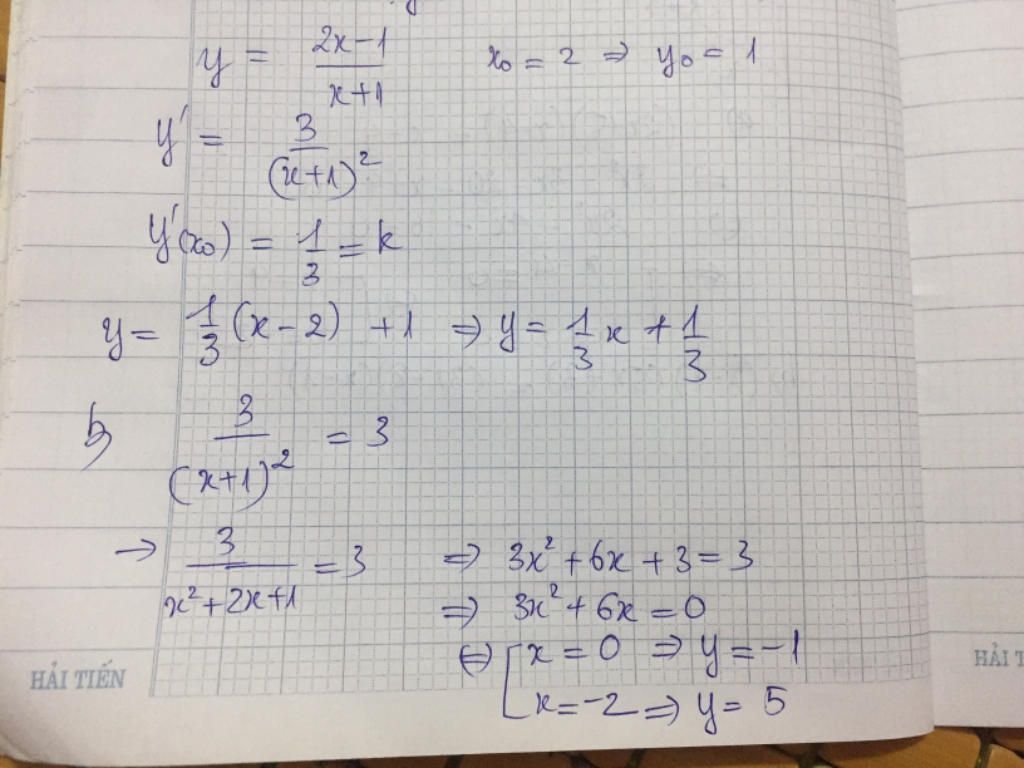 y = (2x-1)/(x+1)    x₀ = 2 ⇒ y₀ = 1
y' = 3/(x+1)²
y'(x₀) = 1/3 = k
y = 1/3 (x - 2) + 1 ⇒ y = 1/3 x + 1/3
b) 3/(x+1)² = 3
→ 3/(x²+2x+1) = 3 ⇒ 3x² + 6x + 3 = 3
⇒ 3x² + 6x = 0
⇔ [ x = 0 ⇒ y = -1
x = -2 ⇒ y = 5
HẢI TIẾN
HẢI T